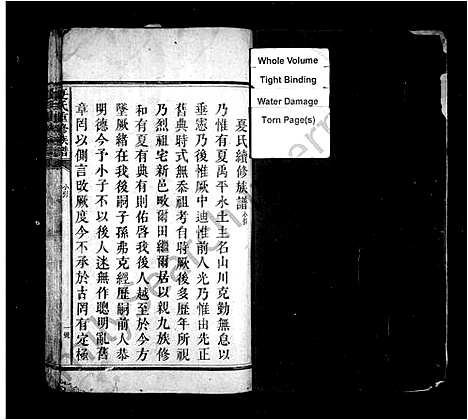 Whole Volume
Tight Binding
Water Damage
Torn Page(s)
夏氏續修族譜 小引
乃惟有夏禹平水土主名山川克勤無息以
垂憲乃後惟厥中迪惟前人光乃惟由先正
舊典時式無忝祖考自時厥後多歷年所視
乃烈祖宅新邑畋爾田繼爾居以親九族修
和有夏有典有則佑啓我後人越至於今方
墜厥緒在我後嗣子孫弗克經歷嗣前人恭
明德今予小子不以後人迷無作聰明亂舊
章罔以側言改厥度今不承於古罔有定極
小引